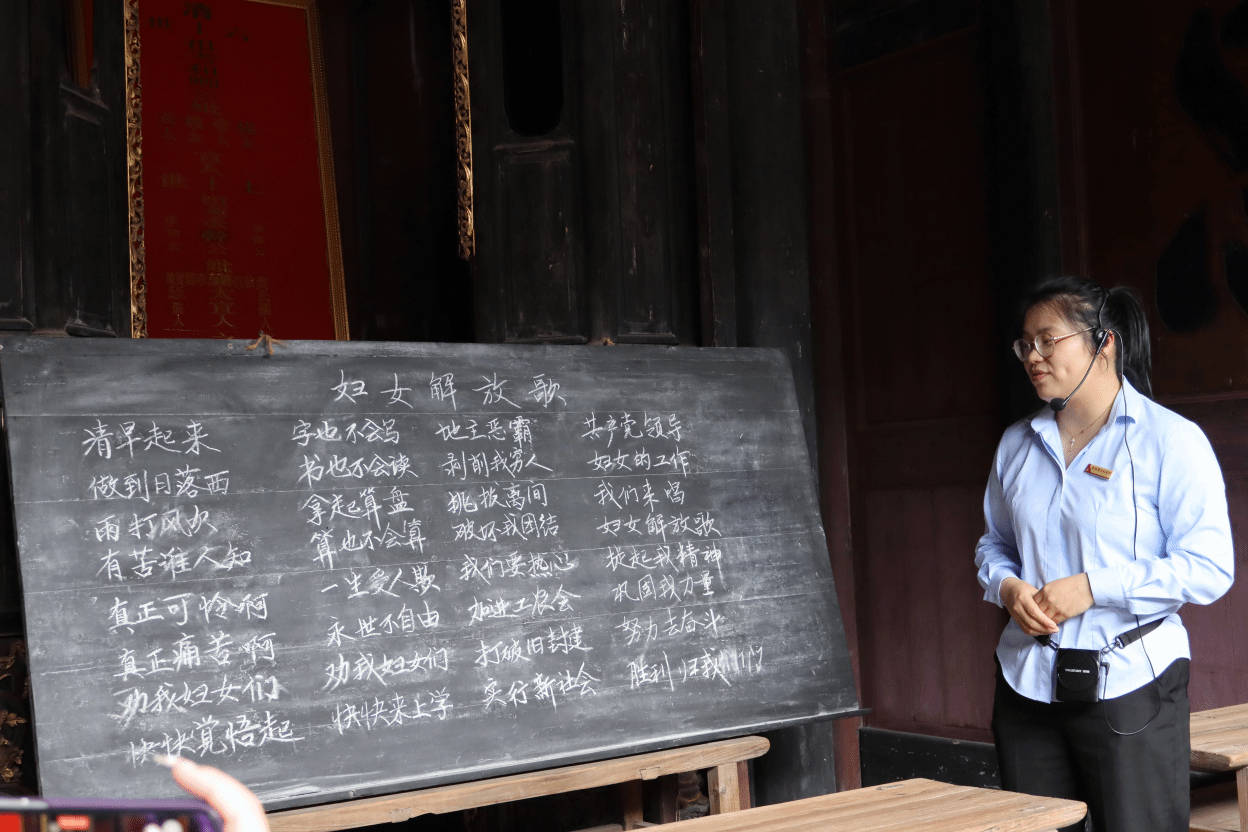 妇女解放歌
清早起来
做到日落西
雨打风吹
有苦谁人知
真正可怜啊
真正痛苦啊
劝我妇女们
快快觉悟起
字也不会写
书也不会读
拿起算盘
算也不会算
一生受人欺
永世不自由
劝我妇女们
快快来上学
地主恶霸
剥削我穷人
挑拔离间
破坏我团结
我们要热心
加进工农会
打破旧封建
实行新社会
共产党领导
妇女的工作
我们来唱
妇女解放歌
提起我精神
巩固我力量
努力去奋斗
胜利归我们